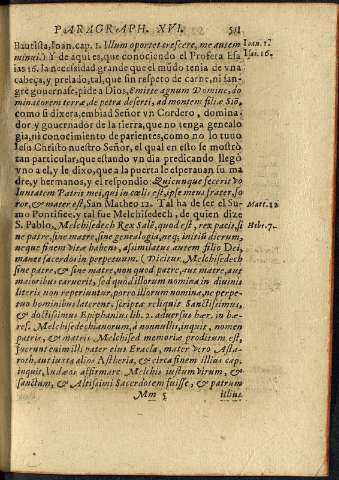 PARAGRAPH. XVI. 511
Bautista, Ioan. cap. 1. Illum oportet crescere, me autem
minui.) Y de aqui es, que conociendo el Profeta Esa
ias 16. la necessidad grande que el mũdo tenia de vna
cabeça, y prelado, tal, que sin respeto de carne, ni san-
gre gouernase, pide a Dios, Emitte agnum Domine, do
minatorem terræ, de petra deserti, ad montem filiæ Siõ,
como si dixera, embiad Señor vn Cordero, domina-
dor y gouernador de la tierra, que no tenga genealo
gia, ni conocimiento de parientes, como no lo tuuo
Iesu Christo nuestro Señor, el qual en esto se mostrò
tan particular, que estando vn dia predicando llegò
vno a el, y le dixo, que a la puerta le esperauan su ma
dre, y hermanos, y el respondio: Quicunque fecerit vo
luntatem Patris mei, qui in cœlis est, ipse meus frater, so
ror, & mater est, San Matheo 12. Tal ha de ser el Su-
mo Pontifice, y tal fue Melchisedech, de quien dize
S. Pablo, Melchisedech Rex Salẽ, quod est, rex pacis, si
ne patre, sine matre, sine genealogia, neq; initiũ dierum,
neque finem vitæ habens, assimilatus autem filio Dei,
manet sacerdos in perpetuum. (Dicitur Melchisedech
sine patre, & sine matre, non quod patre, aut matre, aut
maioribus caruerit, sed quod illorum nomina in diuinis
literis non reperiuntur, porro illorum nomina, ne perpe-
tuo hominibus laterent, scripta reliquit Sanctissimus,
& doctissimus Epiphanius lib. 2. aduersus hær. in hæ-
res. Melchisedechianorum, à nonnullis, inquit, nomen
patris, & matris Melchised memoriæ proditum est,
fuerunt enim illi pater eius Eracla, mater vero Asta-
roth, aut iuxta alios Astheria, & circa finem illius cap.
inquit, Iudæos affirmare Melchis iustum virum, &
sanctum, & Altissimi Sacerdotem fuisse, & patrum
Mm 5 illius
Ioan. 1.
Isai. 16.
Matt. 12
Hebr. 7.